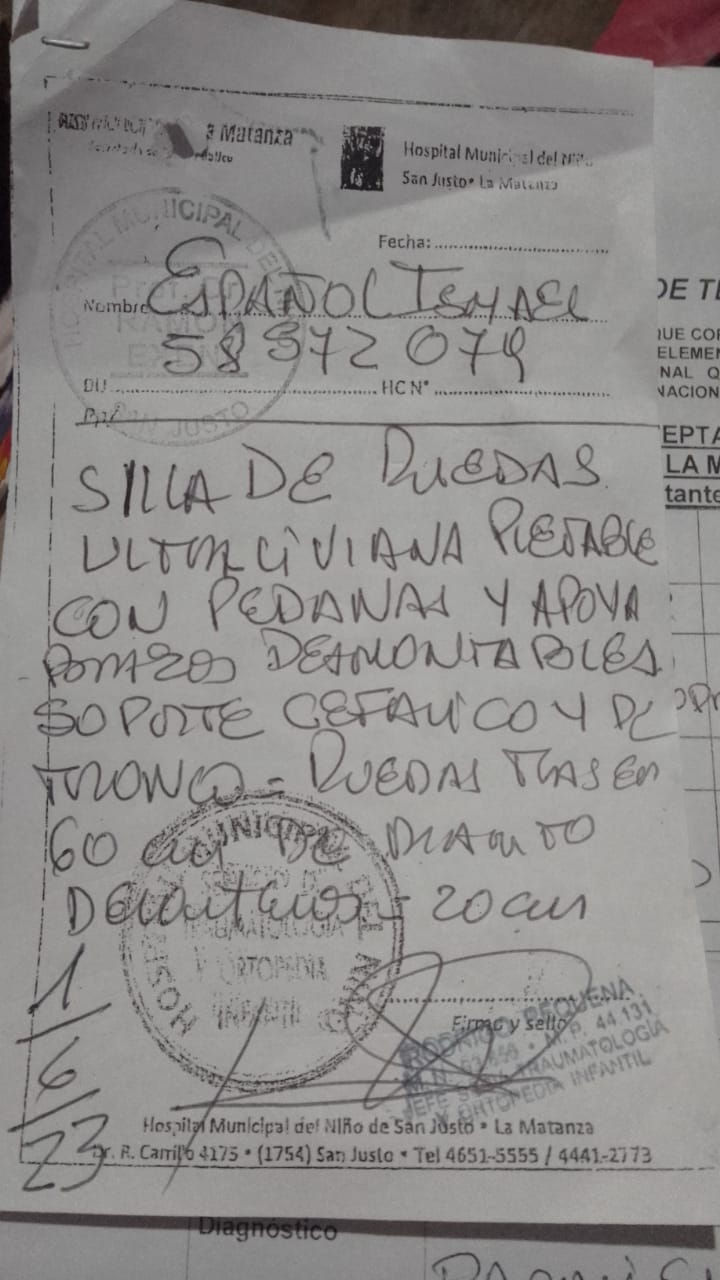 a Matanza
Hospital Municipal del Niño
San Justo • La Matanza
HOSPITAL MUNICIPAL DEL
SAN JUSTO
Fecha:
Nombre ESPAÑOL ISMAEL
58 372 079
DU HC N°
SILLA DE RUEDAS
ULTRALIVIANA PLEGABLE
CON PEDANAS Y APOYA
BRAZOS DESMONTABLES
SOPORTE CEFALICO Y DE
TRONCO - RUEDAS TRASER
60 cm DE DIAMTO
Delanteras - 20 cm
MUNICIPAL DEL
TRAUMATOLOGIA
Y ORTOPEDIA
INFANTIL
HOSP
1/6/23
Firma y sello
RODRIGO REQUENA
M.P. 44.131
JEFE TRAUMATOLOGÍA
Y ORTOPEDIA INFANTIL
Hospital Municipal del Niño de San Justo • La Matanza
Dr. R. Carrillo 4175 • (1754) San Justo • Tel 4651-5555 / 4441-2773
DE
QUE
NAL
LA
Diagnóstico